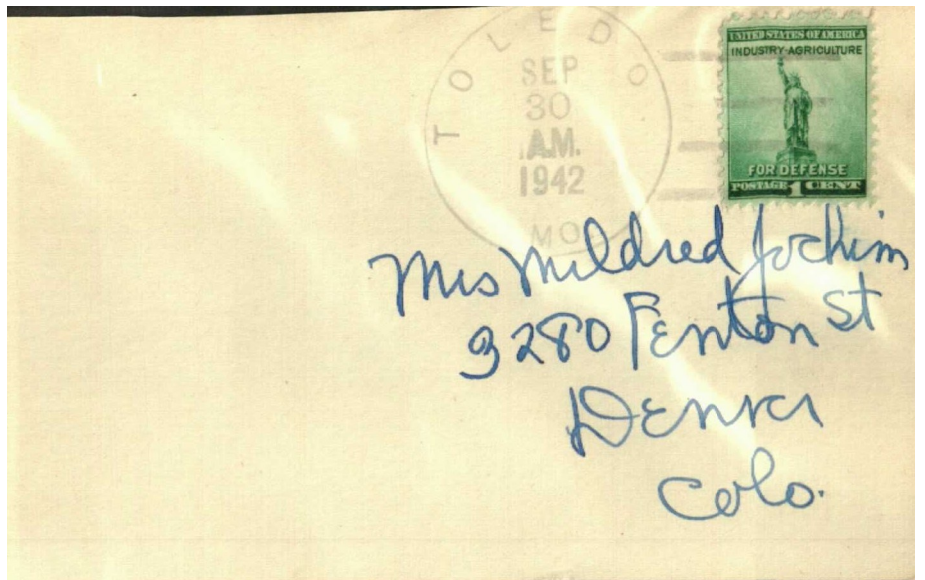 TOLEDO
SEP
30
A.M.
1942
MO.
UNITED STATES OF AMERICA
INDUSTRY-AGRICULTURE
FOR DEFENSE
POSTAGE 1 CENT
Mrs Mildred Jochim
3280 Fenton St
Denver
Colo.